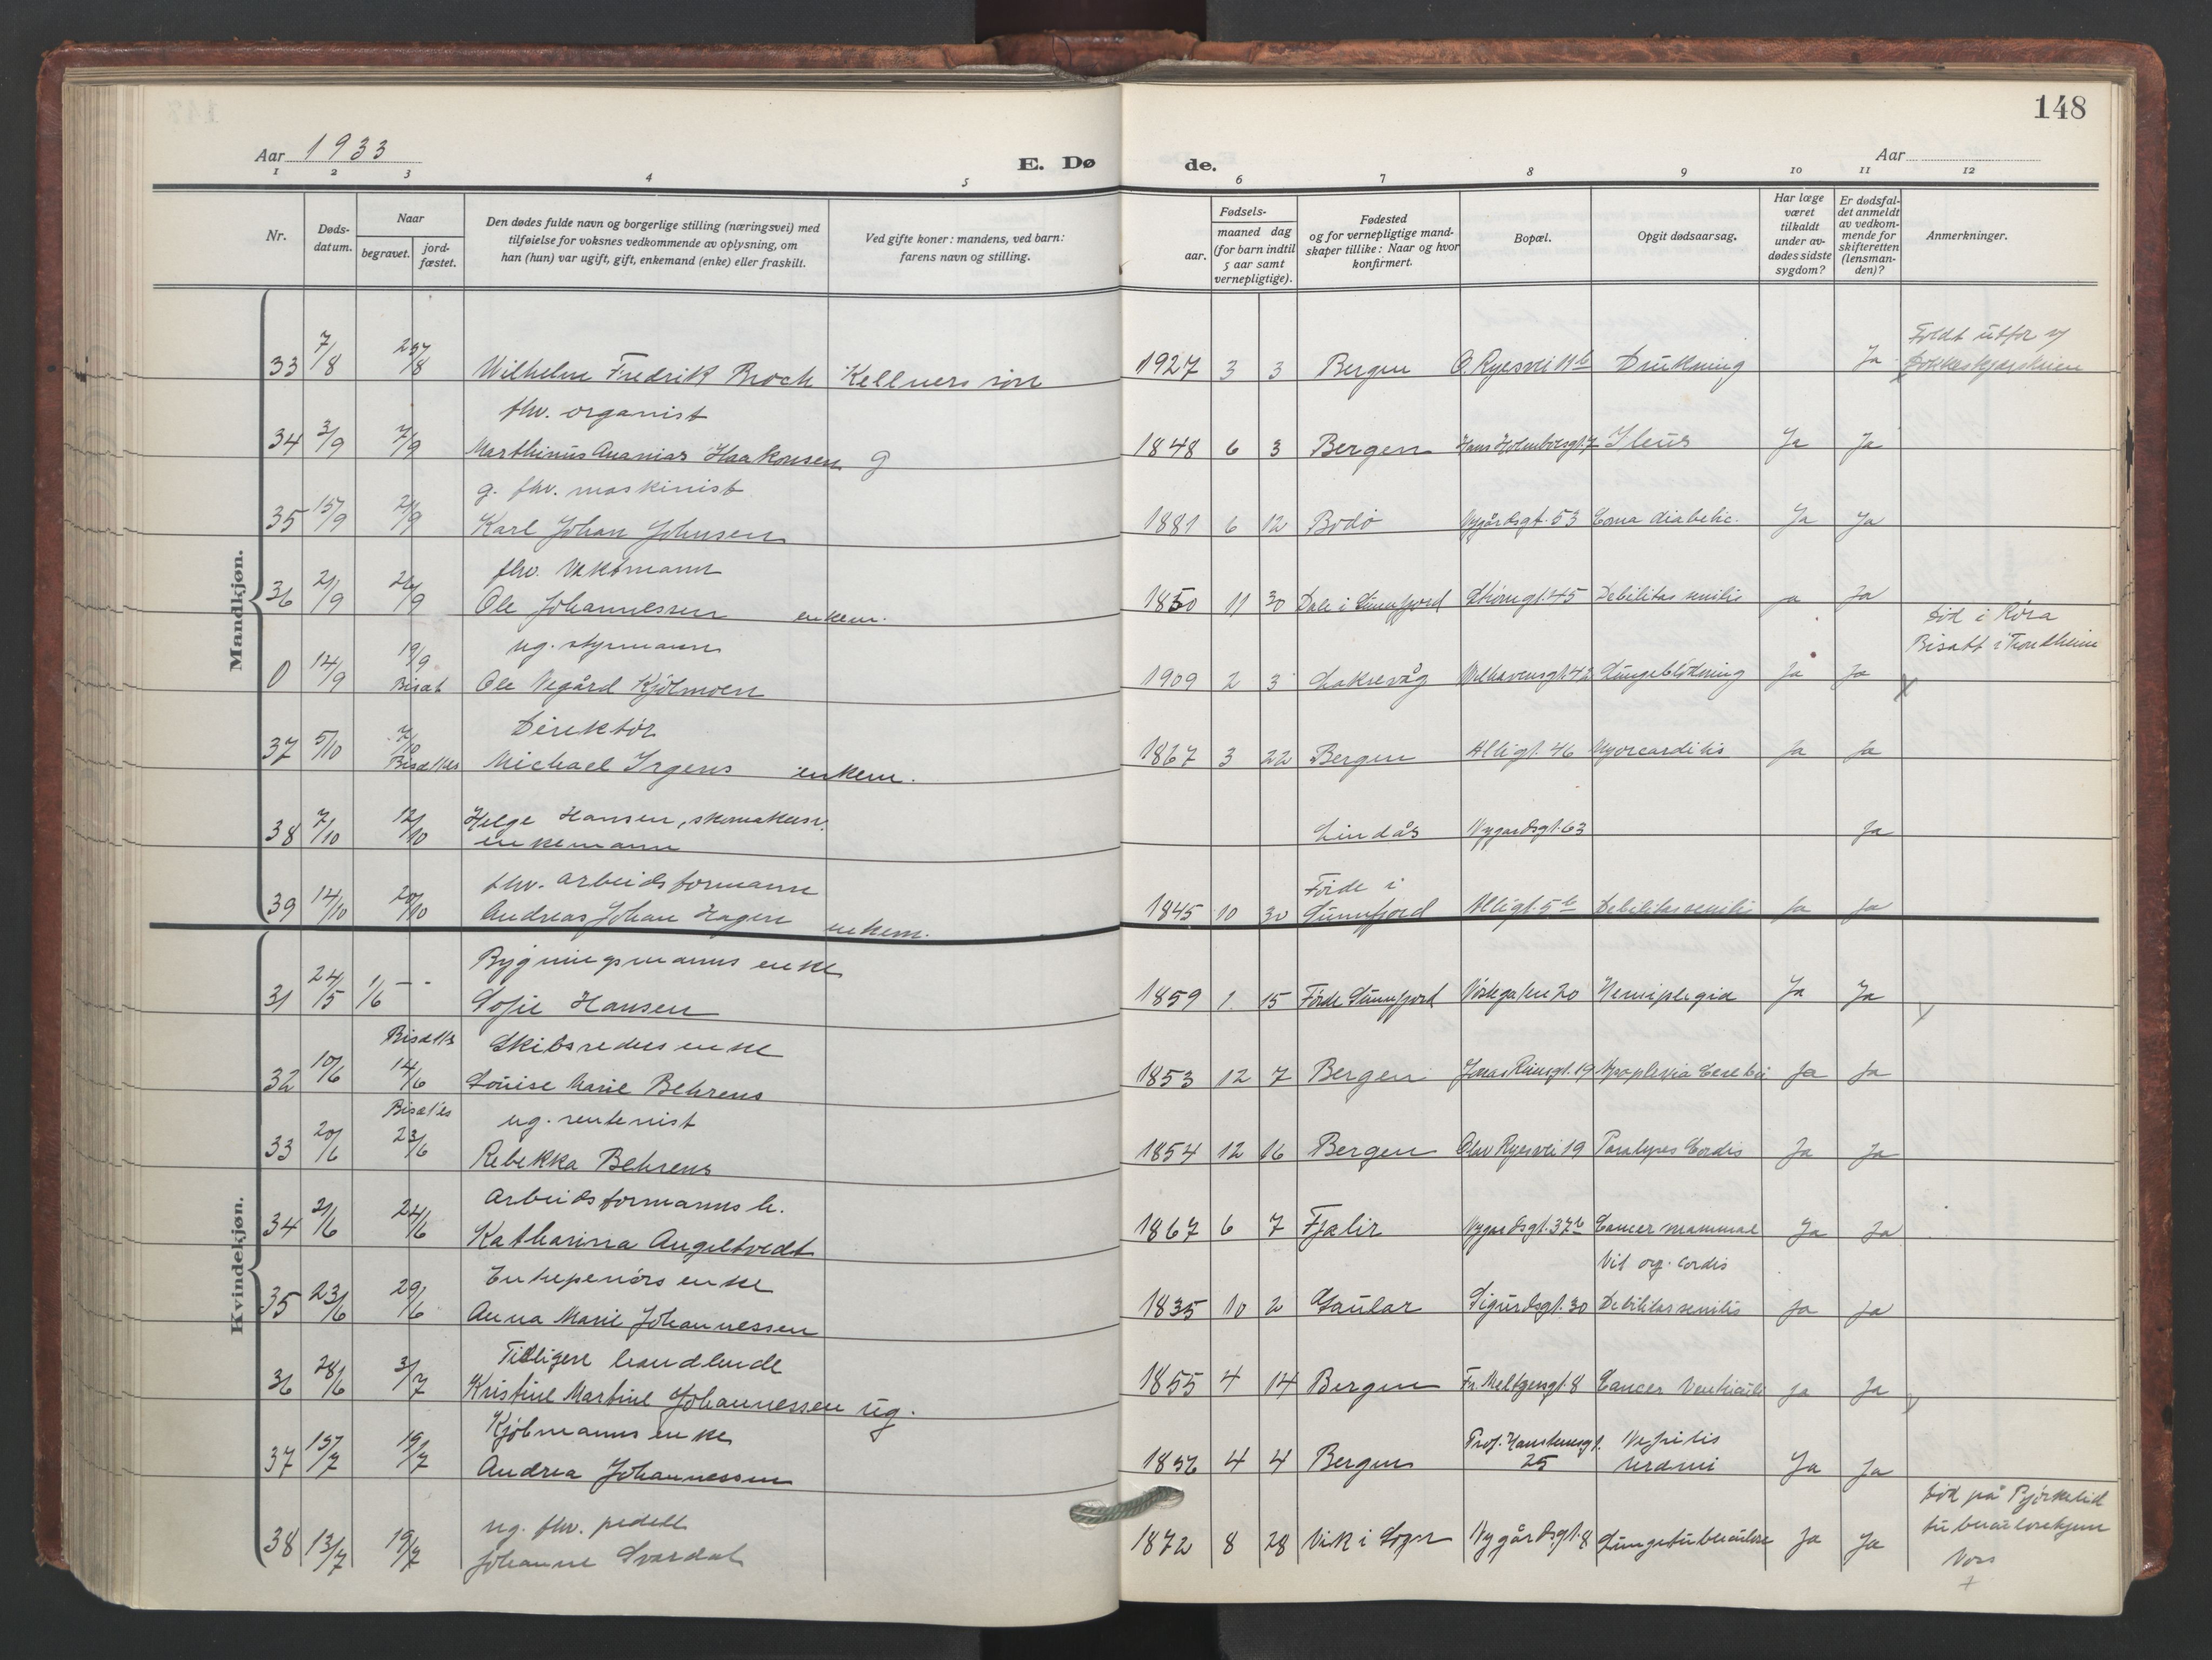 148
Aar 1933
E. Dø de.
Aar
1 2 3 4 5 6 7 8 9 10 11 12
Nr.
Døds-
datum.
Naar
begravet.
jord-
fæstet.
Den dødes fulde navn og borgerlige stilling (næringsvei) med
tilføielse for voksnes vedkommende av oplysning, om
han (hun) var ugift, gift, enkemand (enke) eller fraskilt.
Ved gifte koner: mandens, ved barn:
farens navn og stilling.
aar.
Fødsels-
maaned dag
(for barn indtil
5 aar samt
vernepligtige).
Fødested
og for vernepligtige mand-
skaper tillike: Naar og hvor
konfirmert.
Bopæl.
Opgit dødsaarsag.
Har læge
været
tilkaldt
under av-
dødes sidste
sygdom?
Er dødsfal-
det anmeldt
av vedkom-
mende for
skifteretten
(lensman-
den)?
Anmerkninger.
Mandkjøn.
Faldt utfor
33 7/8 Wilhelm Fredrik Broch Kellners søn 1927 3 3 Bergen O. Ryesvei 11b Drukning Ja Dokkeskjærskaien
fhv. organist
34 3/9 7/9 Marthinus Ananias Haakonsen g 1848 6 3 Bergen Hans Holmboesgt. 7 Ileus Ja Ja
g. fhv. maskinist
35 15/9 21/9 Karl Johan Johnsen 1881 6 12 Bodø Nygårdsgt. 53 Coma diabetic. Ja Ja
fhv. Vaktmann
36 21/9 26/9 Ole Johannessen enkem. 1850 11 30 Dale i Sunnfjord Strømgt. 45 Debilitas senilis ja Ja
ug. styrmann død i Røra
Bisatt i Trondheim
0 14/9 19/9 Bisat Ole Vegård Kjølmoen 1909 2 3 Laksevåg Welhavensgt. 42 Lungeblødning Ja Ja
Direktør
37 5/10 7/10 Bisættes Michael Irgens enkem. 1867 3 22 Bergen Allégt. 46 Myocarditis Ja Ja
38 7/10 12/10 Helge Hansen, skomaker. Lindås Nygårdsgt. 63 Ja
enkemann
fhv. arbeidsformann Førde i
39 14/10 20/10 Andreas Johan Hagen enkem. 1845 10 30 Sunnfjord Allégt. 5b Debilitas senilis Ja Ja
Kvindekjøn.
Bygningsmanns enke
31 24/5 1/6 - - Sofie Hansen 1859 1 15 Førde Sunnfjord Vossegaten 20 Hemiplegia Ja Ja
Bisættes Skibsreders enke
32 10/6 14/6 Louise Marie Behrens 1853 12 7 Bergen Jonas Reinsgt. 19 Apoplexia Cerebri Ja Ja
Bisættes ug. rentenist
33 20/6 23/6 Rebekka Behrens 1854 12 16 Bergen Olav Ryesvei 19 Paralyses Cordis Ja Ja
Arbeidsformanns h.
34 21/6 24/6 Katharina Angeltvedt 1867 6 7 Fjaler Nygårdsgt. 37b Cancer mammae Ja Ja
Entrepenørs enke Vit org. cordis
35 23/6 29/6 Anna Marie Johannessen 1835 10 2 Gaular Sigurdsgt. 30 Debilitas senilis Ja Ja
Tidligere handlende
36 28/6 3/7 Kristine Martine Johannessen ug. 1855 4 14 Bergen Fr. Meltzersgt. 8 Cancer Ventriculi ja Ja
Kjøbmanns enke Prof. Hansteensgt. Nefritis
37 15/7 19/7 Andrea Johannessen 1856 4 4 Bergen 25 uræmi Ja Ja
ug. fhv. pedell død på Bjørkelid
tuberkulosehjem
38 13/7 19/7 Johanne Svardal 1872 8 28 Vik i Sogn Nygårdsgt. 8 Lungetuberkulose Ja Ja Voss